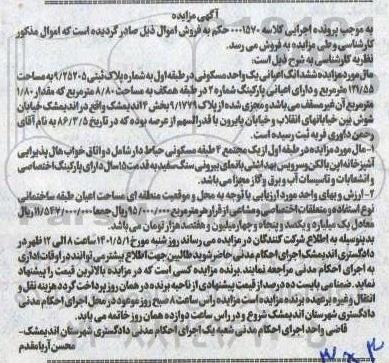 آگهی مزایده
به موجب پرونده اجرایی کلاسه ۰۰۰۱۵۷۰ حکم به فروش اموال ذیل صادر گردیده است که اموال مذکور
کارشناسی و طی مزایده به فروش می رسد.
نظریه کارشناسی به شرح ذیل است:
مال مورد مزایده ششدانگ اعیانی یک واحد مسکونی در طبقه اول به شماره پلاک ثبتی ۹/۲۵۲۰۵ به مساحت
۱۲۱/۵۵ مترمربع و دارای اعیانی پارکینگ شماره ۲ در طبقه همکف به مساحت ۸/۸۰ مترمربع که مقدار ۱/۸۰
مترمربع آن غیرمسقف می باشد و مجزی شده از پلاک ۹/۱۷۷۹ بخش ۴ اندیمشک واقع در اندیمشک خیابان
شوش بین خیابانهای انقلاب و خیابان پابرون با قدرالسهم از عرصه بوده که در تاریخ ۸۶/۳/۵ به نام آقای
رحمن داوری فر به ثبت رسیده است.
۱-مال مورد مزایده در طبقه اول از یک مجتمع ۴ طبقه مسکونی حیاط دار شامل دو اتاق خواب هال پذیرایی
آشپزخانه این بالکن وسرویس بهداشتی بانمای بیرونی سنگ سفید به قدمت ۱۵سال دارای پارکینگ اختصاصی
و انشعابات و تاسیسات آب و برق و گاز مجزا می باشد.
۲-ارزش و بهای واحد مورد ارزیابی با توجه به محل و موقعیت منطقه ای مساحت اعیان طبقه ساختمانی
نوع استفاده و متعلقات اختصاصی و مشاعی از قرار هر مترمربع ۹۵/۰۰۰/۰۰۰ریال جمعا ۱۱/۵۴۷/۰۰۰/۰۰۰ریال
معادل یک میلیارد و یکصد و پنجاه و چهار میلیون و هفتصد هزار تومان می باشد.
بدینوسیله به اطلاع شرکت کنندگان در مزایده می رساند روز شنبه مورخ ۱۴۰۱/۵/۱ ساعت ۸ الی ۱۲ ظهر در
دادگستری اندیمشک اجرای احکام مدنی حاضر شوید طالبین جهت اطلاع بیشتر می توانند در اوقات اداری
به اجرای احکام مدنی مراجعه نمایند. برنده مزایده کسی است که در مزایده بالاترین قیمت را پیشنهاد
نماید. ضمنا می بایست ده درصد از قیمت پیشنهادی از ناحیه برنده در همان روز پرداخت گردد هزینه نقل و
انتقال وغیره برعهده برنده مزایده است مزایده راس ساعت ۸ صبح روز موعود در محل اجرای احکام مدنی
دادگستری شهرستان اندیمشک شروع و در راس ساعت دوازده همان روز خاتمه می یابد.
قاضی واحد اجرای احکام مدنی شعبه یک اجرای احکام مدنی دادگستری شهرستان اندیمشک-
محسن آریامقدم